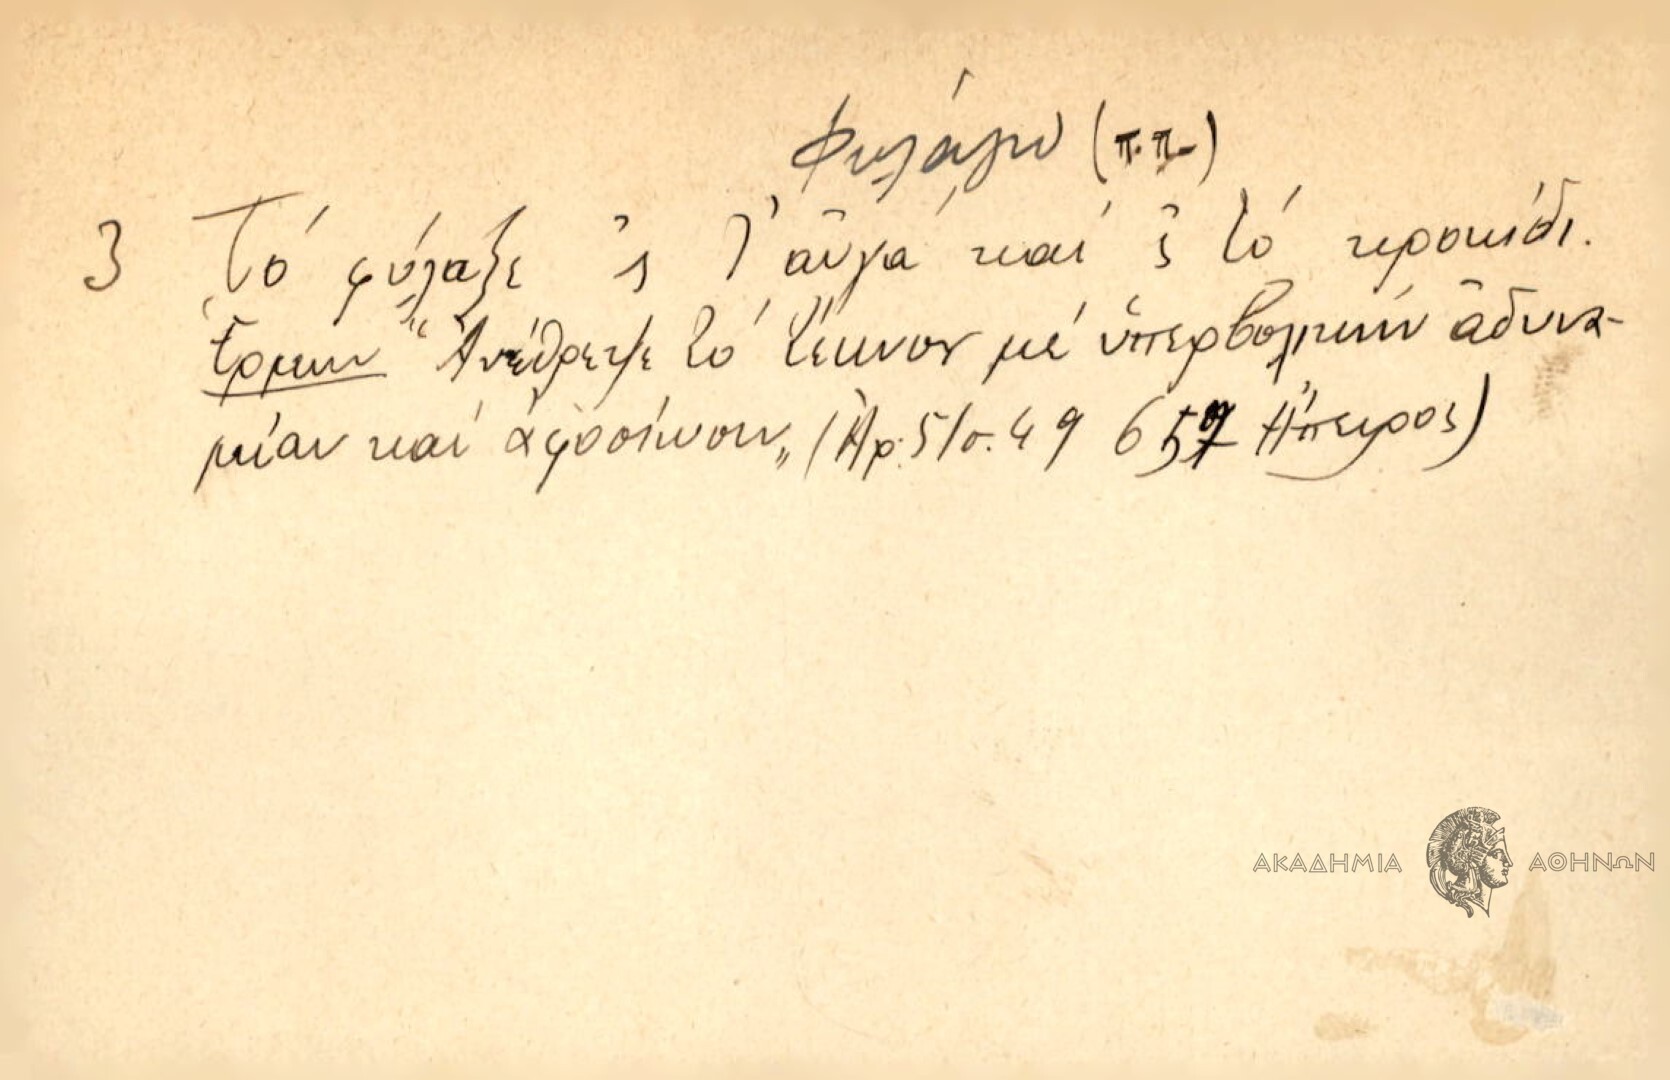 Φυλάγω (π.π.)
3 Τό φύλαξε 'ς τ' αὐγά καί 'ς τό κροκίδι.
Ἑρμην "Ἀνέθρεψε τό τέκνον μέ ὑπερβολικήν ἀδυνα-
μίαν καί ἀφοσίωσιν„ (Ἀρ. 51 σ. 49 Ἤπειρος)
ΑΚΑΔΗΜΙΑ ΑΘΗΝΩΝ